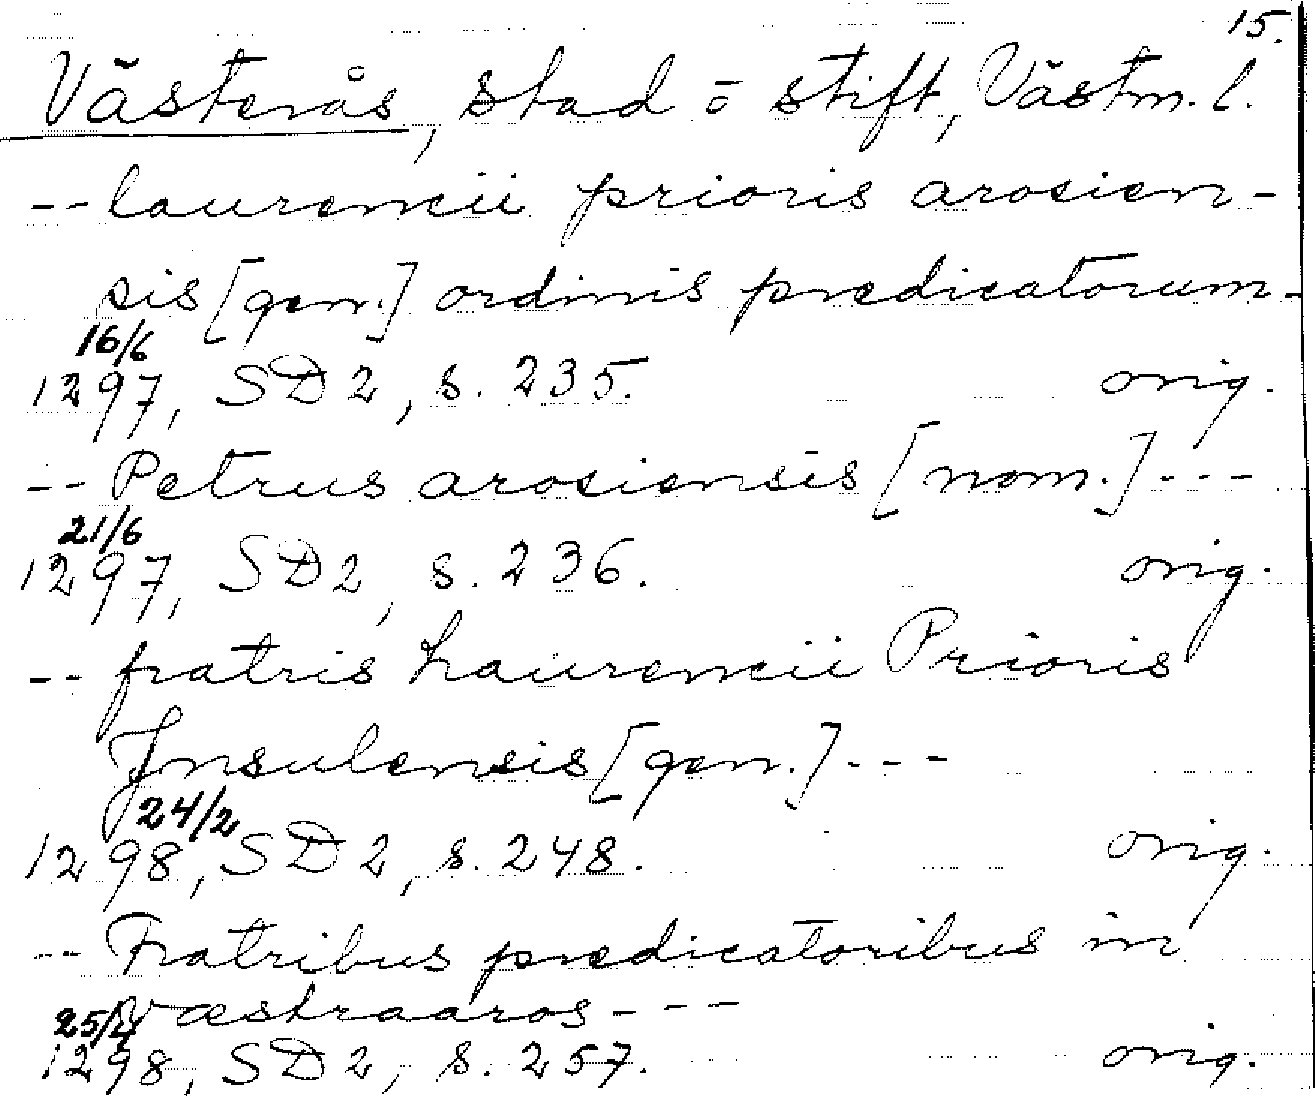 15.
Västerås, stad o stift, Västm. l.
-- laurencii prioris arosien-
sis [gen.] ordinis predicatorum-
16/6
1297, SD 2, s. 235. orig.
-- Petrus arosiensis [nom.] ---
21/6
1297, SD 2, s. 236. orig.
-- fratris Laurencii Prioris
Jnsulensis [gen.] ---
24/2
1298, SD 2, s. 248. orig.
-- Fratribus predicatoribus in
wæstraaros ---
1298, SD 2, s. 257. orig.